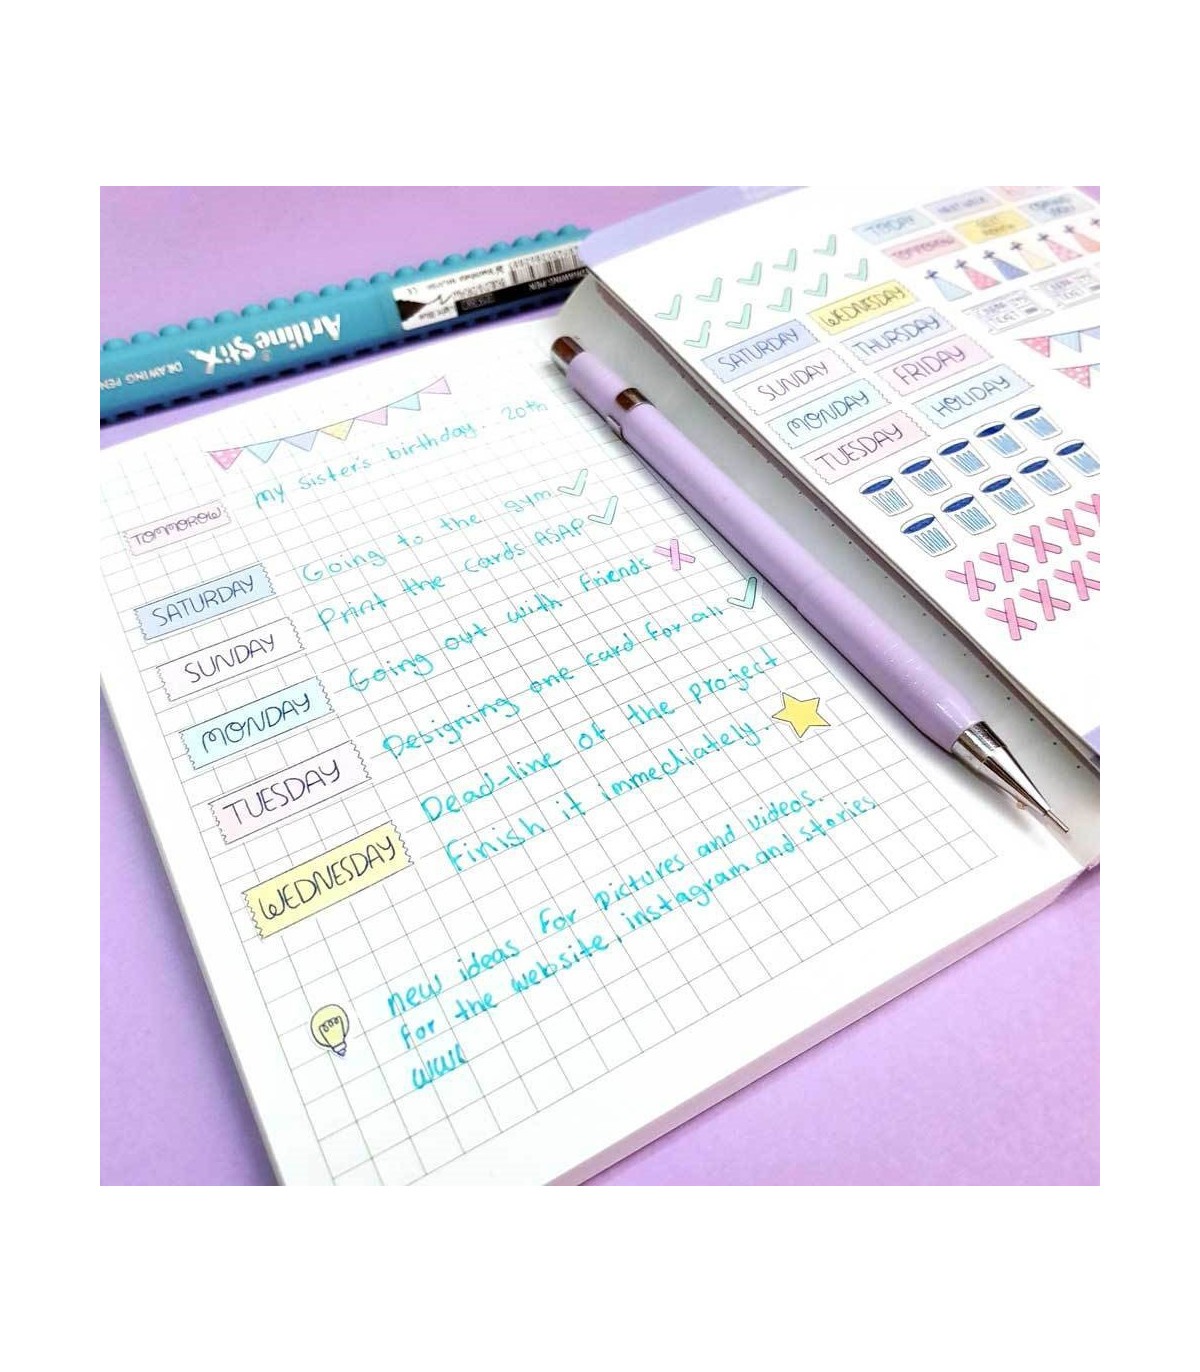 Artline Stix
DRAWING PEN
DRAWING PEN
my sister's birthday. 20th
TOMMOROW
Going to the gym
SATURDAY
Print the cards ASAP
SUNDAY
Going out with friends
MONDAY
Designing one card for all
TUESDAY
Dead-line of the project
WEDNESDAY
Finish it immediately.
new ideas for pictures and videos.
for the website, instagram and stories
TODAY
NEXT WEEK
WEDNESDAY
SATURDAY
THURSDAY
SUNDAY
FRIDAY
MONDAY
HOLIDAY
TUESDAY